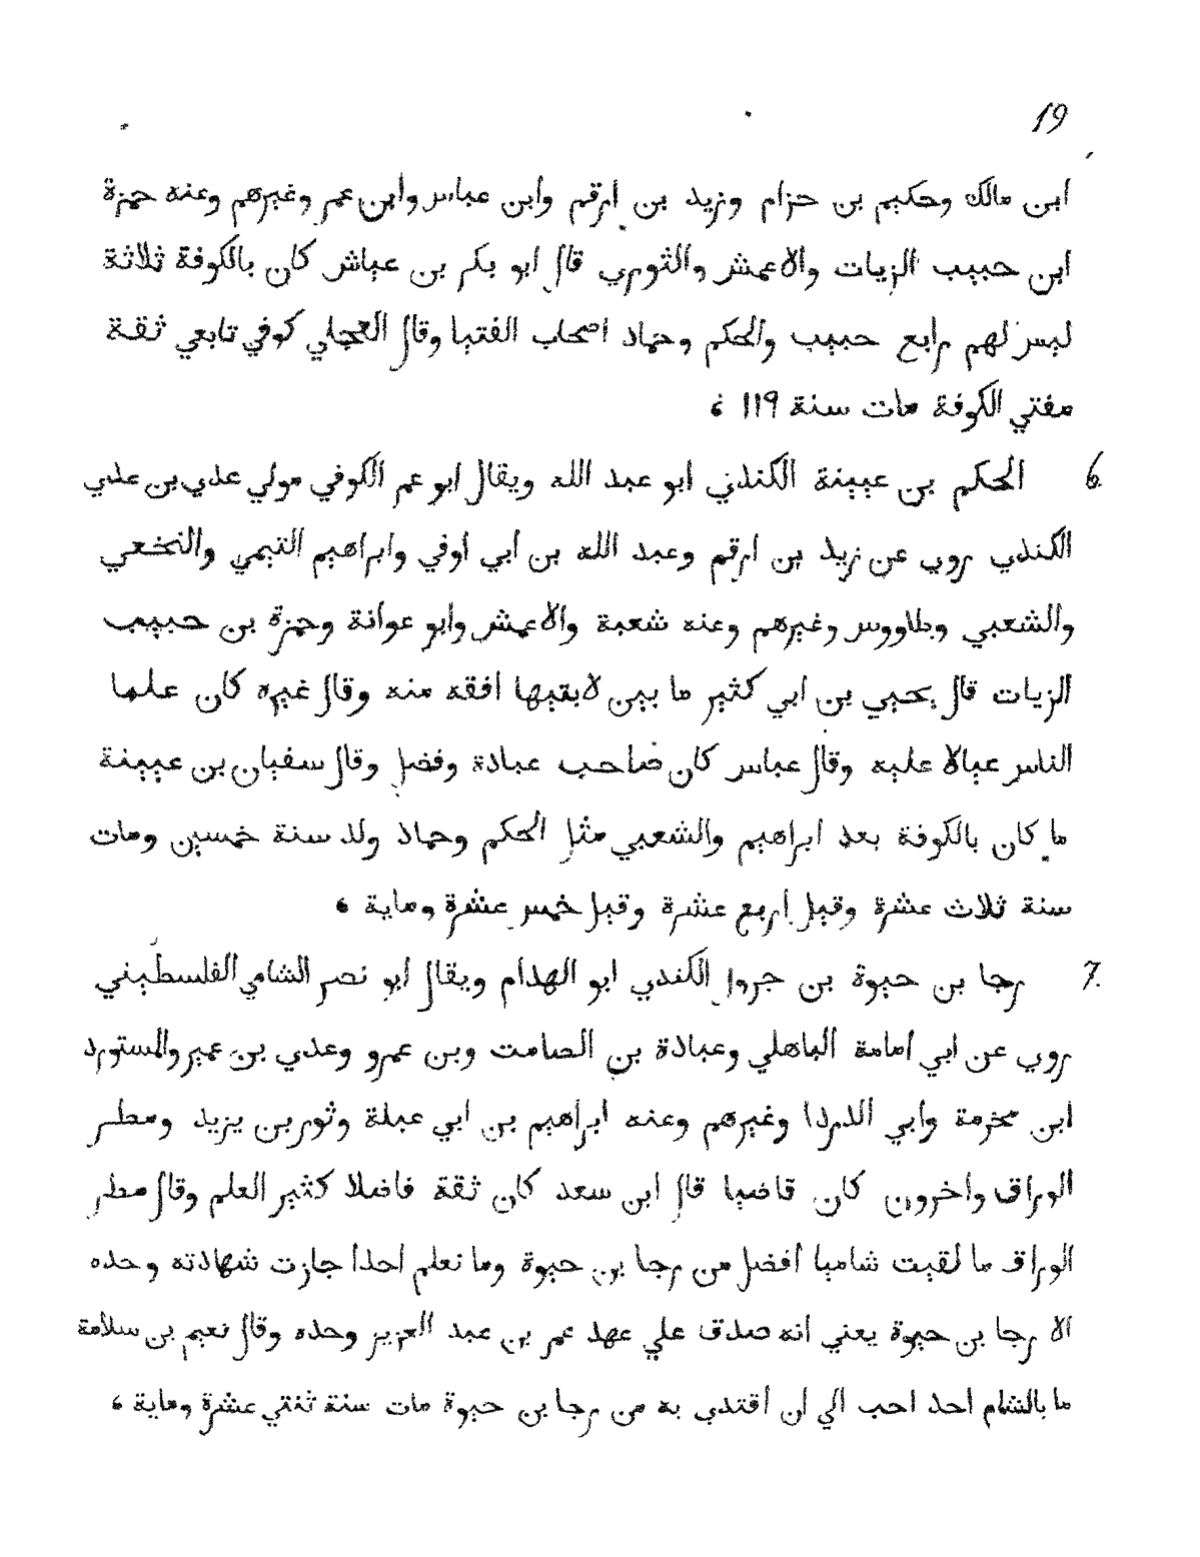 19
ابن مالك وحكيم بن حزام وزيد بن ارقم وابن عباس وابن عمر وغيرهم وعنه حمزة
ابن حبيب الزيات والاعمش والثوري قال ابو بكر بن عياش كان بالكوفة ثلاثة
ليس لهم رابع حبيب والحكم وحماد اصحاب الفتيا وقال العجلي كوفي تابعي ثقة
مفتي الكوفة مات سنة ١١٩ ،
6. الحكم بن عيينة الكندي ابو عبد الله ويقال ابو عمر الكوفي مولي عدي بن علي
الكندي روي عن زيد بن ارقم وعبد الله بن أبي أوفي وابراهيم التيمي والنخعي
والشعبي وطاووس وغيرهم وعنه شعبة والاعمش وابو عوانة وحمزة بن حبيب
الزيات قال يحيي بن ابي كثير ما بين لابتيها افقه منه وقال غيره كان علما
الناس عيالا عليه وقال عباس كان صاحب عبادة وفضل وقال سفيان بن عيينة
ما كان بالكوفة بعد ابراهيم والشعبي مثل الحكم وحماد ولد سنة خمسين ومات
سنة ثلاث عشرة وقيل اربع عشرة وقيل خمس عشرة وماية ،
7. رجا بن حيوة بن جرول الكندي ابو الهدام ويقال ابو نصر الشامي الفلسطيني
روي عن ابي أمامة الباهلي وعبادة بن الصامت وبن عمرو وعدي بن عمير والمستورد
ابن مخرمة وابي الدردا وغيرهم وعنه ابراهيم بن ابي عبلة وثور بن يزيد ومطر
الوراق واخرون كان قاضيا قال ابن سعد كان ثقة فاضلا كثير العلم وقال مطر
الوراق ما لقيت شاميا أفضل من رجا بن حيوة وما نعلم احدا جازت شهادته وحده
الا رجا بن حيوة يعني انه صدق علي عهد عمر بن عبد العزيز وحده وقال نعيم بن سلامة
ما بالشام احد احب الي ان اقتدي به من رجا بن حيوة مات سنة ثنتي عشرة وماية ،